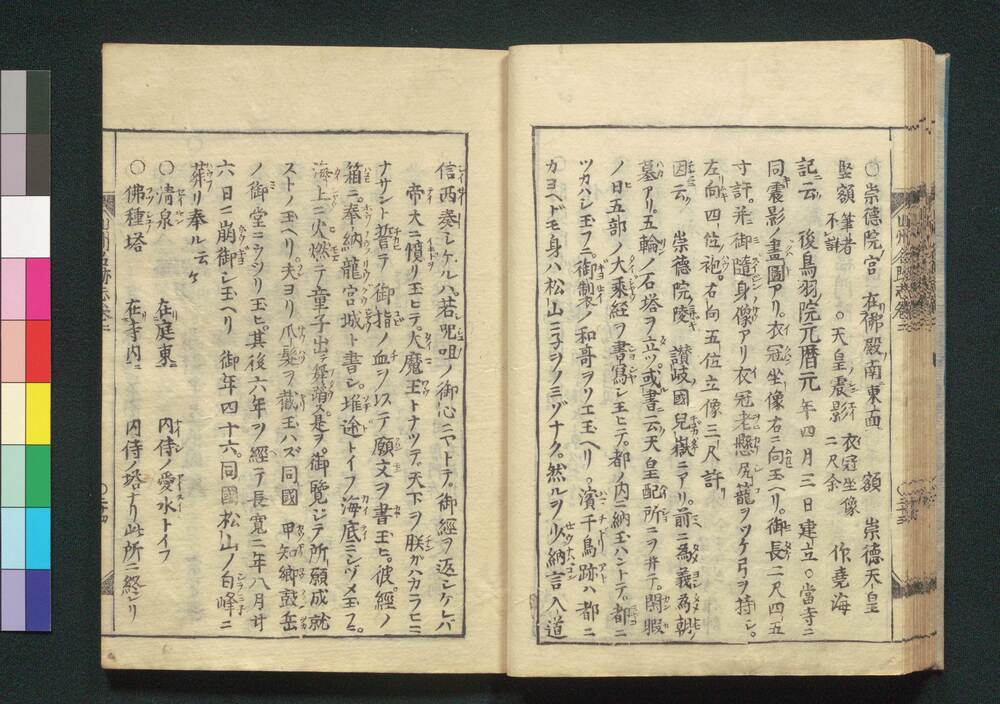 ○崇德院宮 在佛殿南東面 額 崇德天皇
竪額 筆者不詳 ○天皇震影 衣冠坐像二尺余 作堯海
記云 後鳥羽院元暦元年四月三日建立○當寺ニ
同震影ノ畫圖アリ衣冠坐像右ニ向玉ヘリ御長二尺四五
寸許并御隨身像アリ衣冠老懸尻籠ヲツケ弓ヲ持シ
左向四位袍右向五位立像三尺許
因云 崇德院陵 讃岐國兒嶽ニアリ前ニ為義為朝
墓アリ五輪ノ石塔ヲ立ツ或書云天皇配所ニヲ井テ閑暇
ノ日五部ノ大乘経ヲ書寫シ玉ヒテ都ノ内ニ納玉ハントテ都ニ
ツカハシ玉フニ御制ノ和哥ヲソエ玉ヘリ濱千鳥跡ハ都ニ
カヨヘドモ身ハ松山ニ子ヲノミゾナク然ルヲ少納言入道
信西奏シケルハ若呪咀ノ御心ニヤトテ御經ヲ返シケレバ
帝大ニ憤リ玉ヒテ大魔王トナツテ天下ヲ朕ガハカラヒニ
ナサント誓テ御指ノ血ヲ以テ願文ヲ書玉ヒ彼經ノ
箱ニ奉納龍宮城ト書シ堆途トイフ海底ニシヅメ玉フニ
海上ニ火燃テ童子出テ舞踏ス是ヲ御覽ジテ所願成就
ストノ玉ヘリ夫ヨリ爪髪ヲ截玉ハズ同國 甲知鄉鼓岳
ノ御堂ニウツリ玉ヒ其後六年ヲ經テ長寛二年八月廿
六日ニ崩御シ玉ヘリ 御年四十六同國松山ノ白峰ニ
葬リ奉ル云々
○清泉 在庭東 内侍ノ愛水トイフ
○佛種塔 在寺内 内侍ノ塔ナリ此所ニ終レリ